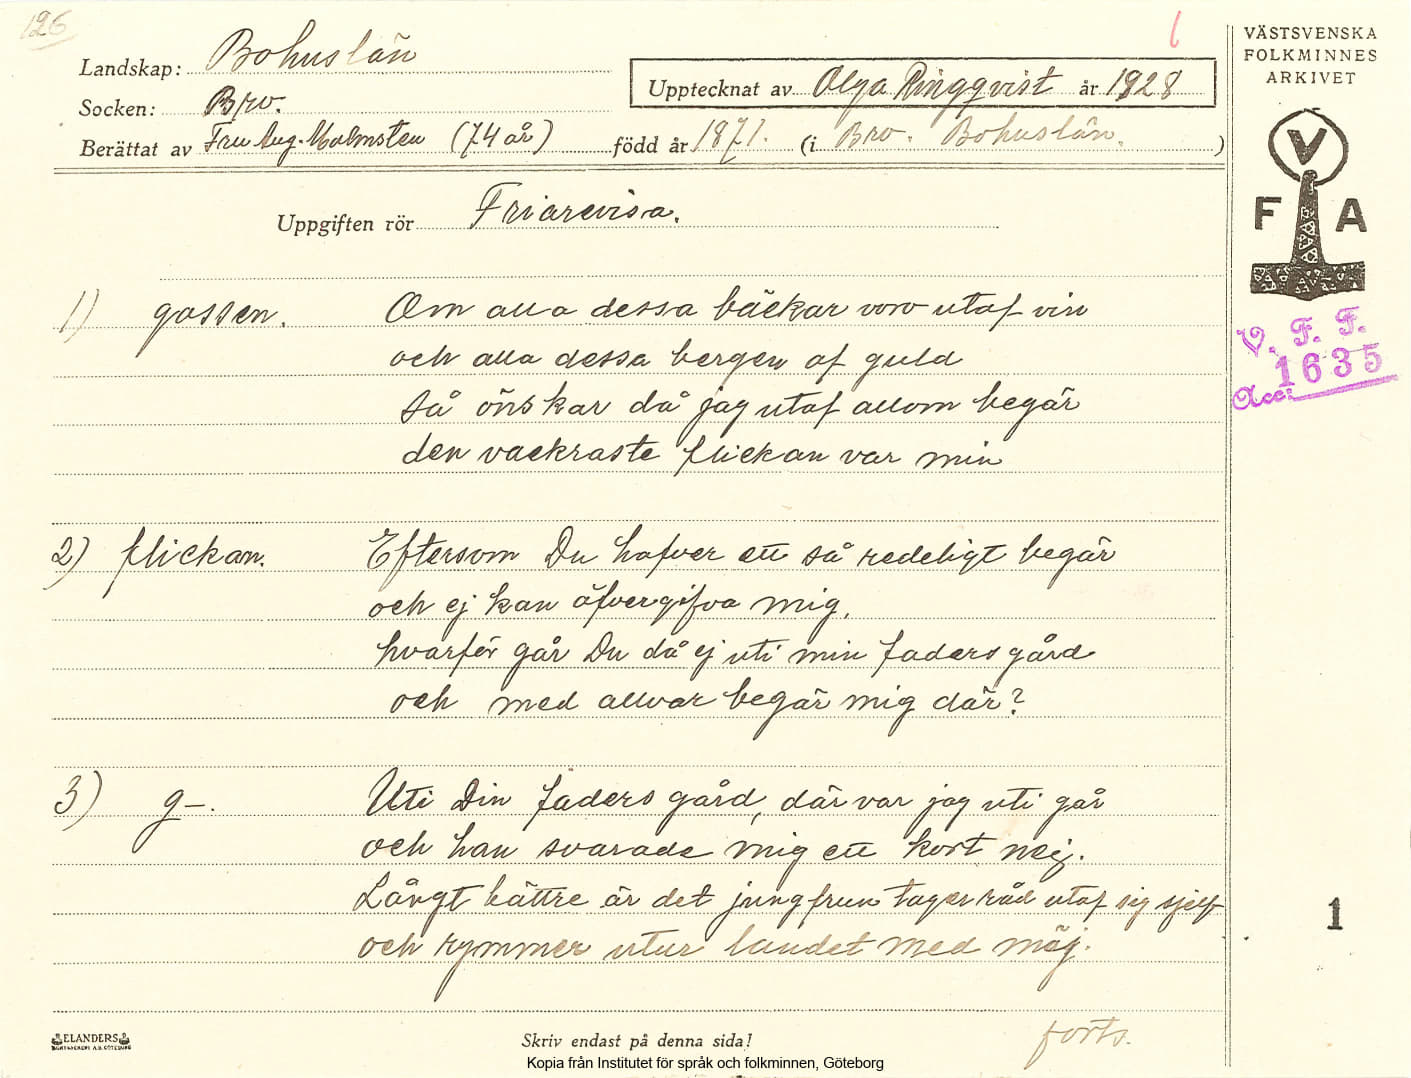 126
Landskap: Bohuslän
Socken: Bro.
Berättat av Fru Aug. Malmsten (74 år) född år 1871. (i Bro. Bohuslän.)
Upptecknat av Olga Ringqvist år 1928
VÄSTSVENSKA
FOLKMINNES
ARKIVET
V
F A
V. F. F.
Acc: 1635
Uppgiften rör Friarevisa.
1) gossen. Om alla dessa bäckar voro utaf vin
och alla dessa bergen af guld
så önskar då jag utaf allom begär
den vackraste flickan var min
2) flickan. Eftersom Du hafver ett så redeligt begär
och ej kan öfvergifva mig,
hvarför går Du då ej uti min faders gård
och med allvar begär mig där?
3) g-. Uti Din faders gård, där var jag uti går
och han svarade mig ett kort nej.
Långt bättre är det jungfrun tager råd utaf sig sjelf
och rymmer utur landet med mäj.
1
forts.
ELANDERS
Skriv endast på denna sida!
Kopia från Institutet för språk och folkminnen, Göteborg